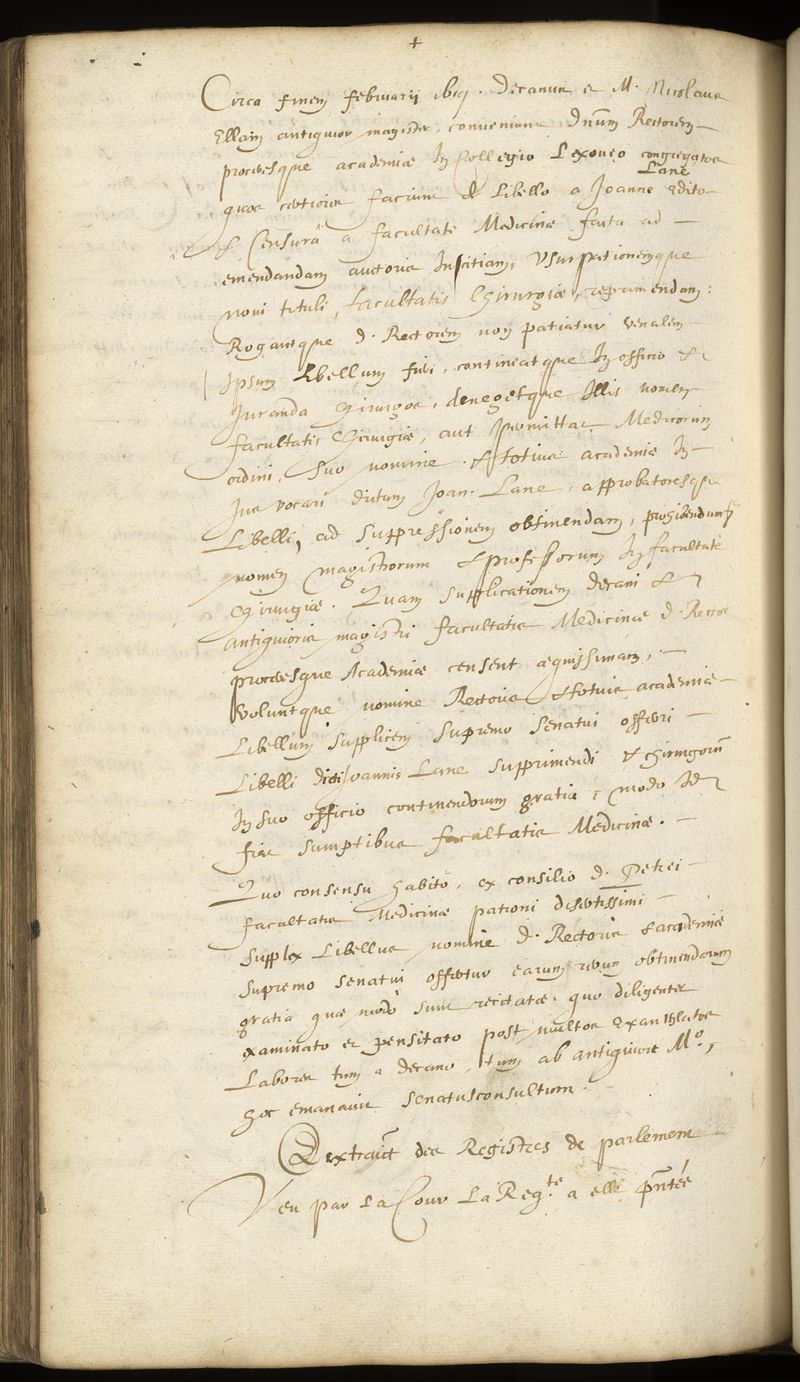 +
Circa finem februarii ibiq. Decanus et M. Nicolaus
Ellain antiquior magister, conveniunt Dnum Rectorem
proceresque academiæ In Collegio Lexoveo congregatos
quos certiores faciunt de Libello a Joanne Lane Edito
& Censurâ a facultate Medicinæ facta ad
emendandam auctoris Inscitiam, Vsurpationemque
novi tituli, facultatis Chirurgiæ, reprimendam:
Rogantque d. Rectorem non patiatur venalem
Ipsum Libellum fieri, contineatque In officio &
Juranda Chirurgos, denegetque Illis nomen
facultatis Chirurgiæ, aut promittat Medicorum
ordini, suo nomine & totius academiæ In
Jus vocari dictum Joan. Lane, approbatoresque
Libelli, ad suppressionem obtinendam, prohibendumq
nomen magistrorum & professorum In facultate
Chirurgiæ. Quam supplicationem decani &
antiquioris magistri facultatis Medicinæ d. Rector
proceresque Academiæ censent æquissimam,
voluntque nomine Rectoris & totius academiæ
Libellum supplicem supremo senatui offerri
Libelli dicti Joannis Lane supprimendi & chirurgorum
In suo officio continendorum gratia, modo Id
fiat sumptibus facultatis Medicinæ.
Quo consensu habito, ex consilio d. Petrei
facultatis Medicinæ patroni disertissimi
supplex Libellus nomine d. Rectoris & academiæ
supremo senatui offertur earum rerum obtinendarum
gratia quæ modò sunt recitatæ. quo diligenter
examinato et pensitato post multos Exanthlatos
Labores tum a decano, tum ab antiquiore Mo,
hoc emanavit senatusconsultum.
Extraict des Registres de parlement
Veu par La Cour La Reqte a elle pntée